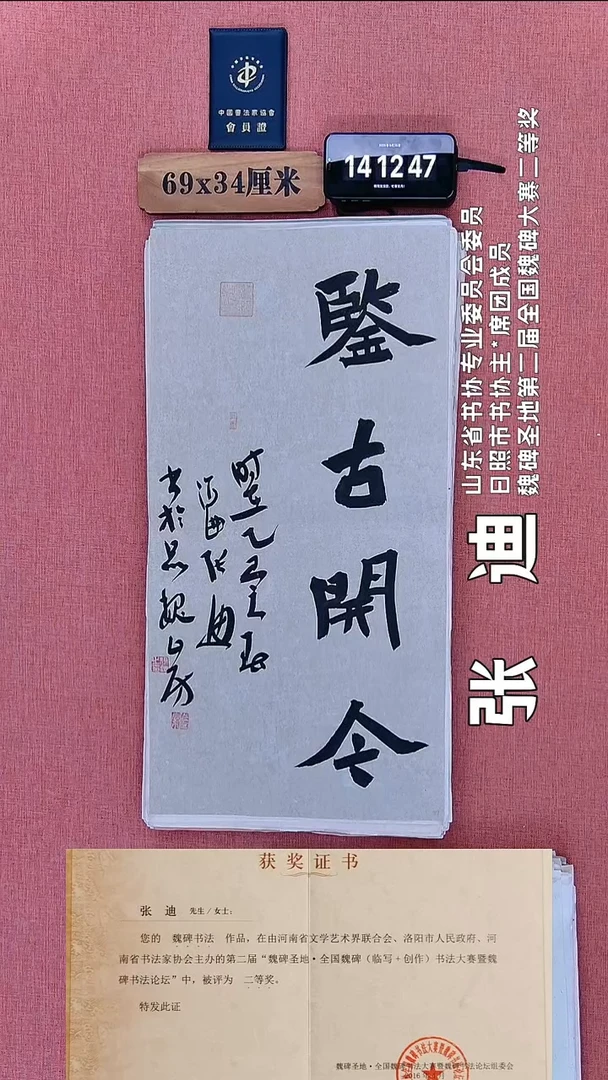 中國書法家協會
會員證
69x34厘米
14 12 47
鑒古開今
時在乙巳之春
山東省书协专业委员会委员
日照市书协主*席团成员
魏碑圣地第二届全国魏碑大赛二等奖
张 迪
获奖证书
张 迪 先生/女士:
您的 魏碑书法 作品,在由河南省文学艺术界联合会、洛阳市人民政府、河
南省书法家协会主办的第二届“魏碑圣地·全国魏碑(临写+创作)书法大赛暨魏
碑书法论坛”中,被评为 二等奖。
特发此证
魏碑圣地·全国魏碑书法大赛暨魏碑书法论坛组委会